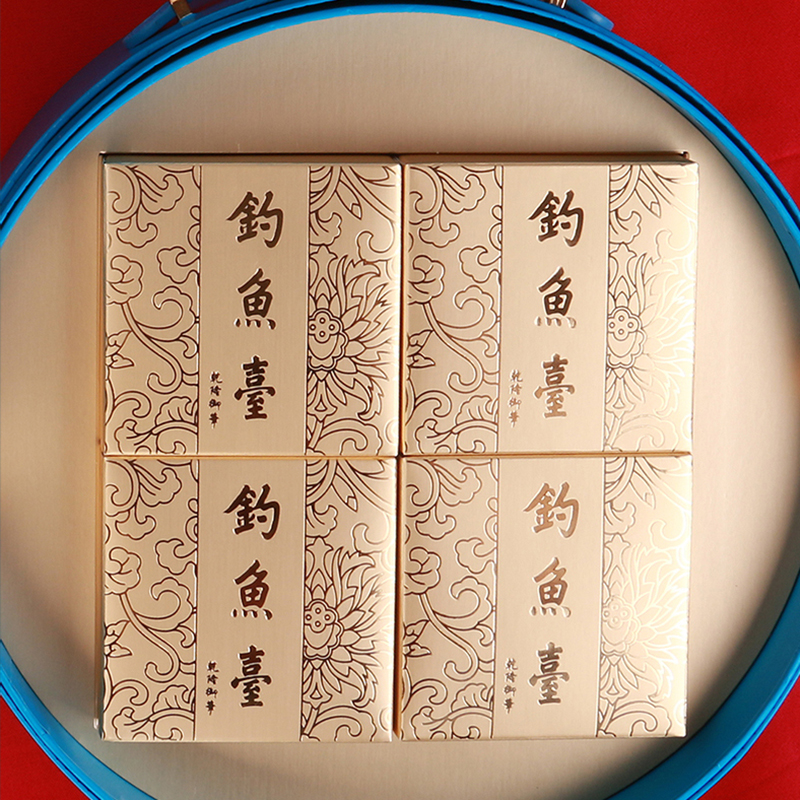 釣魚臺
乾隆御筆
釣魚臺
乾隆御筆
釣魚臺
乾隆御筆
釣魚臺
乾隆御筆